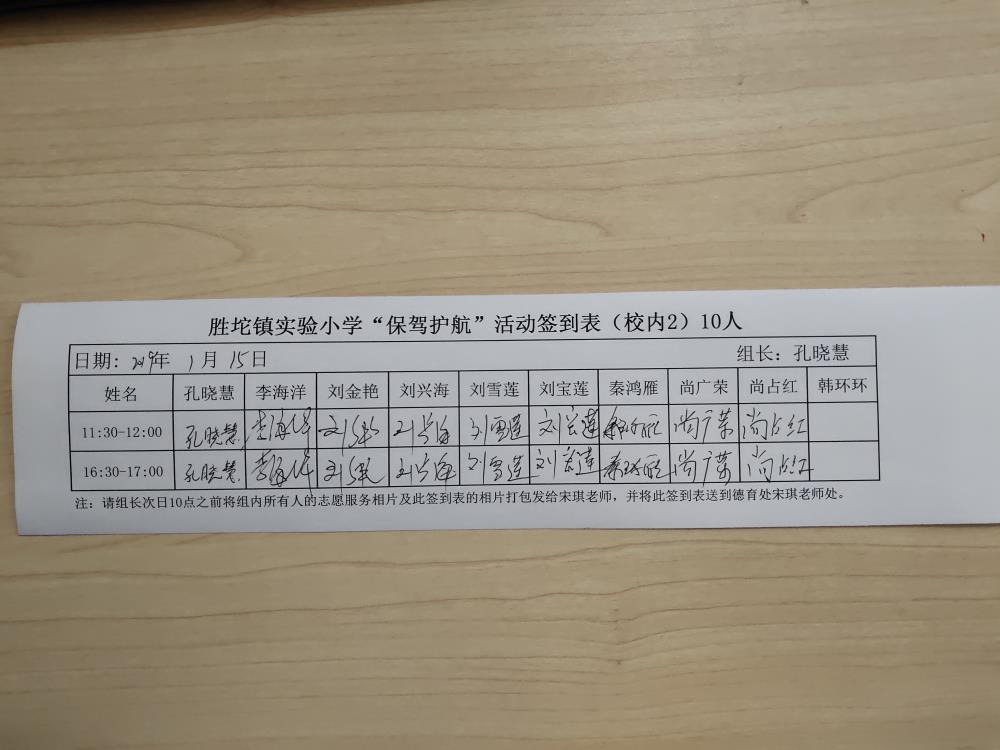 胜坨镇实验小学“保驾护航”活动签到表（校内2）10人
日期: 2019年 1月 15日 组长: 孔晓慧
姓名 孔晓慧 李海洋 刘金艳 刘兴海 刘雪莲 刘宝莲 秦鸿雁 尚广荣 尚占红 韩环环
11:30-12:00 孔晓慧 李海洋 刘金艳 刘兴海 刘雪莲 刘宝莲 秦鸿雁 尚广荣 尚占红
16:30-17:00 孔晓慧 李海洋 刘金艳 刘兴海 刘雪莲 刘宝莲 秦鸿雁 尚广荣 尚占红
注: 请组长次日10点之前将组内所有人的志愿服务相片及此签到表的相片打包发给宋琪老师，并将此签到表送到德育处宋琪老师处。